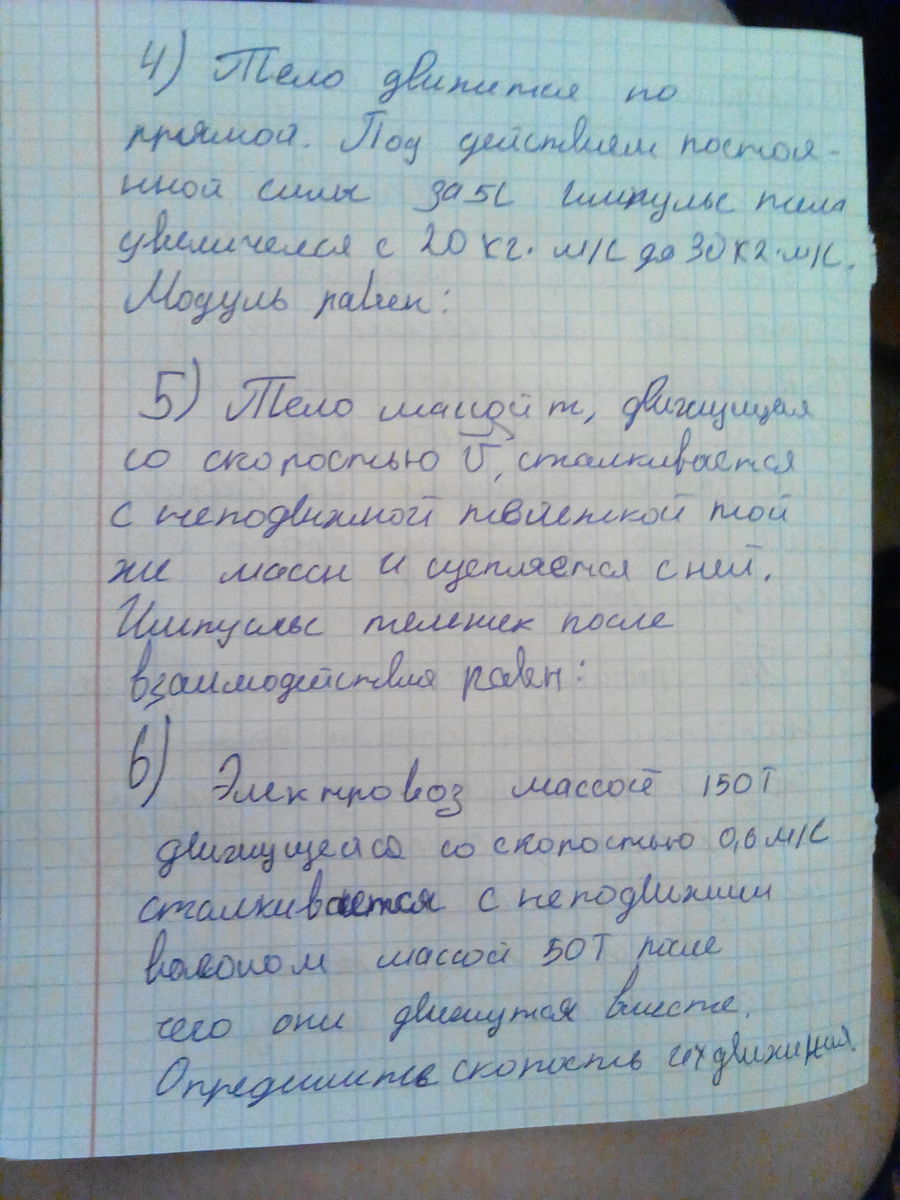 4) Тело движится по
прямой. Под действием постоя-
нной силы за 5с импульс тела
увеличелся с 20 кг·м/с до 30 кг·м/с.
Модуль равен:
5) Тело массой m, движущая
со скоростью v, сталкивается
с неподвижной тележкой той
же массы и сцепляется с ней.
Импульс тележек после
взаимодействия равен:
6) Электровоз массой 150Т
движущейся со скоростью 0,6 м/с
сталкивается с неподвижим
вагоном массой 50Т после
чего они движутся вместе.
Определите скорость их движения.